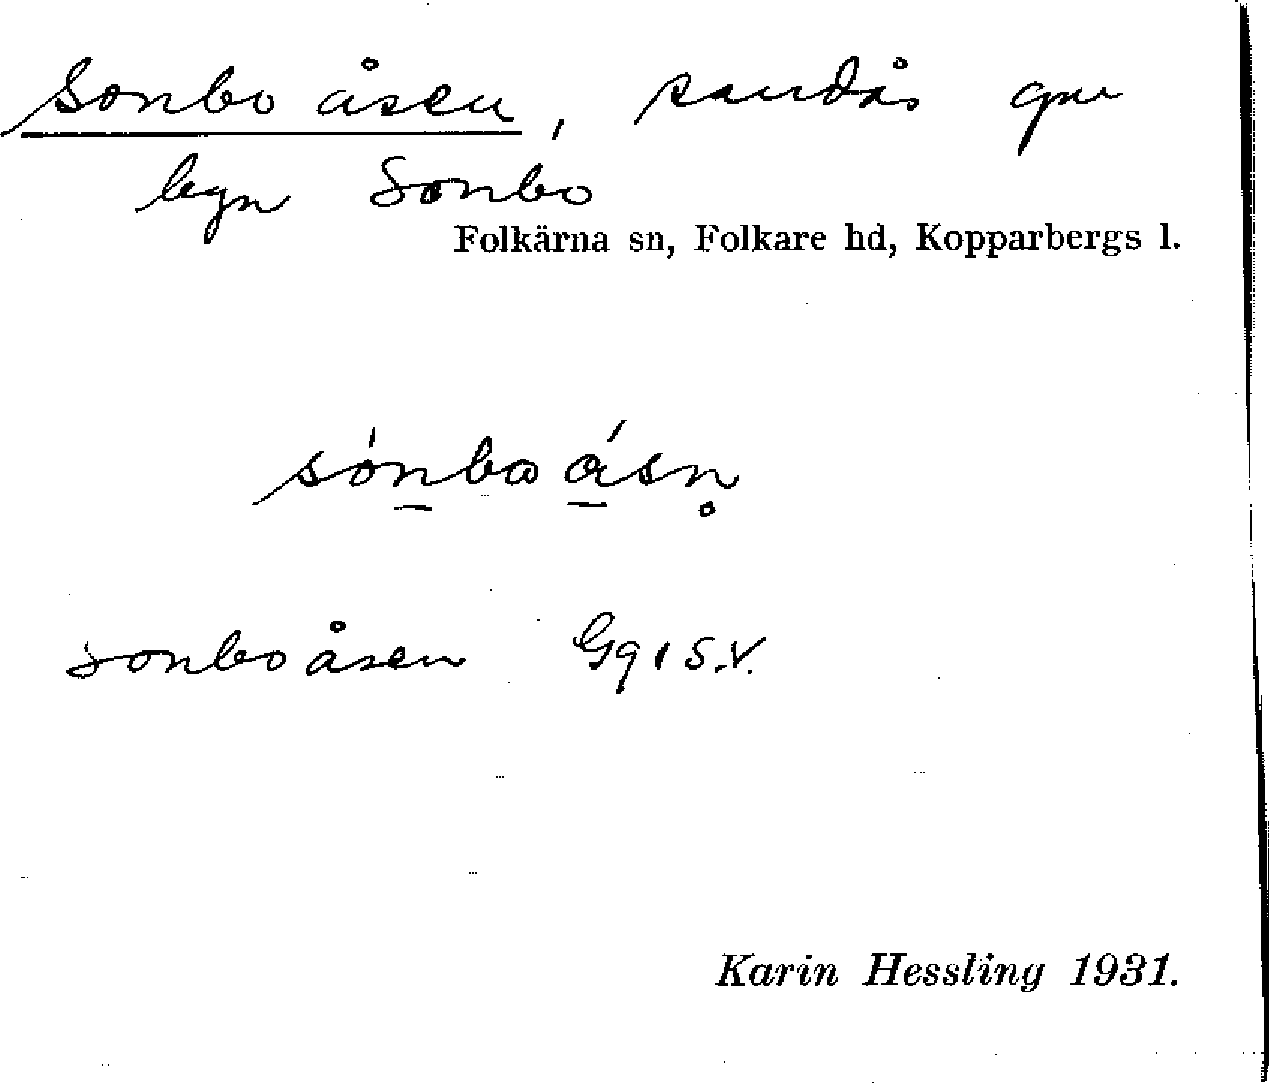 Sonboåsen, sandås gm
byn Sonbo
Folkärna sn, Folkare hd, Kopparbergs l.
sónboåsn̥
Sonboåsen Gg 1 S.V.
Karin Hessling 1931.